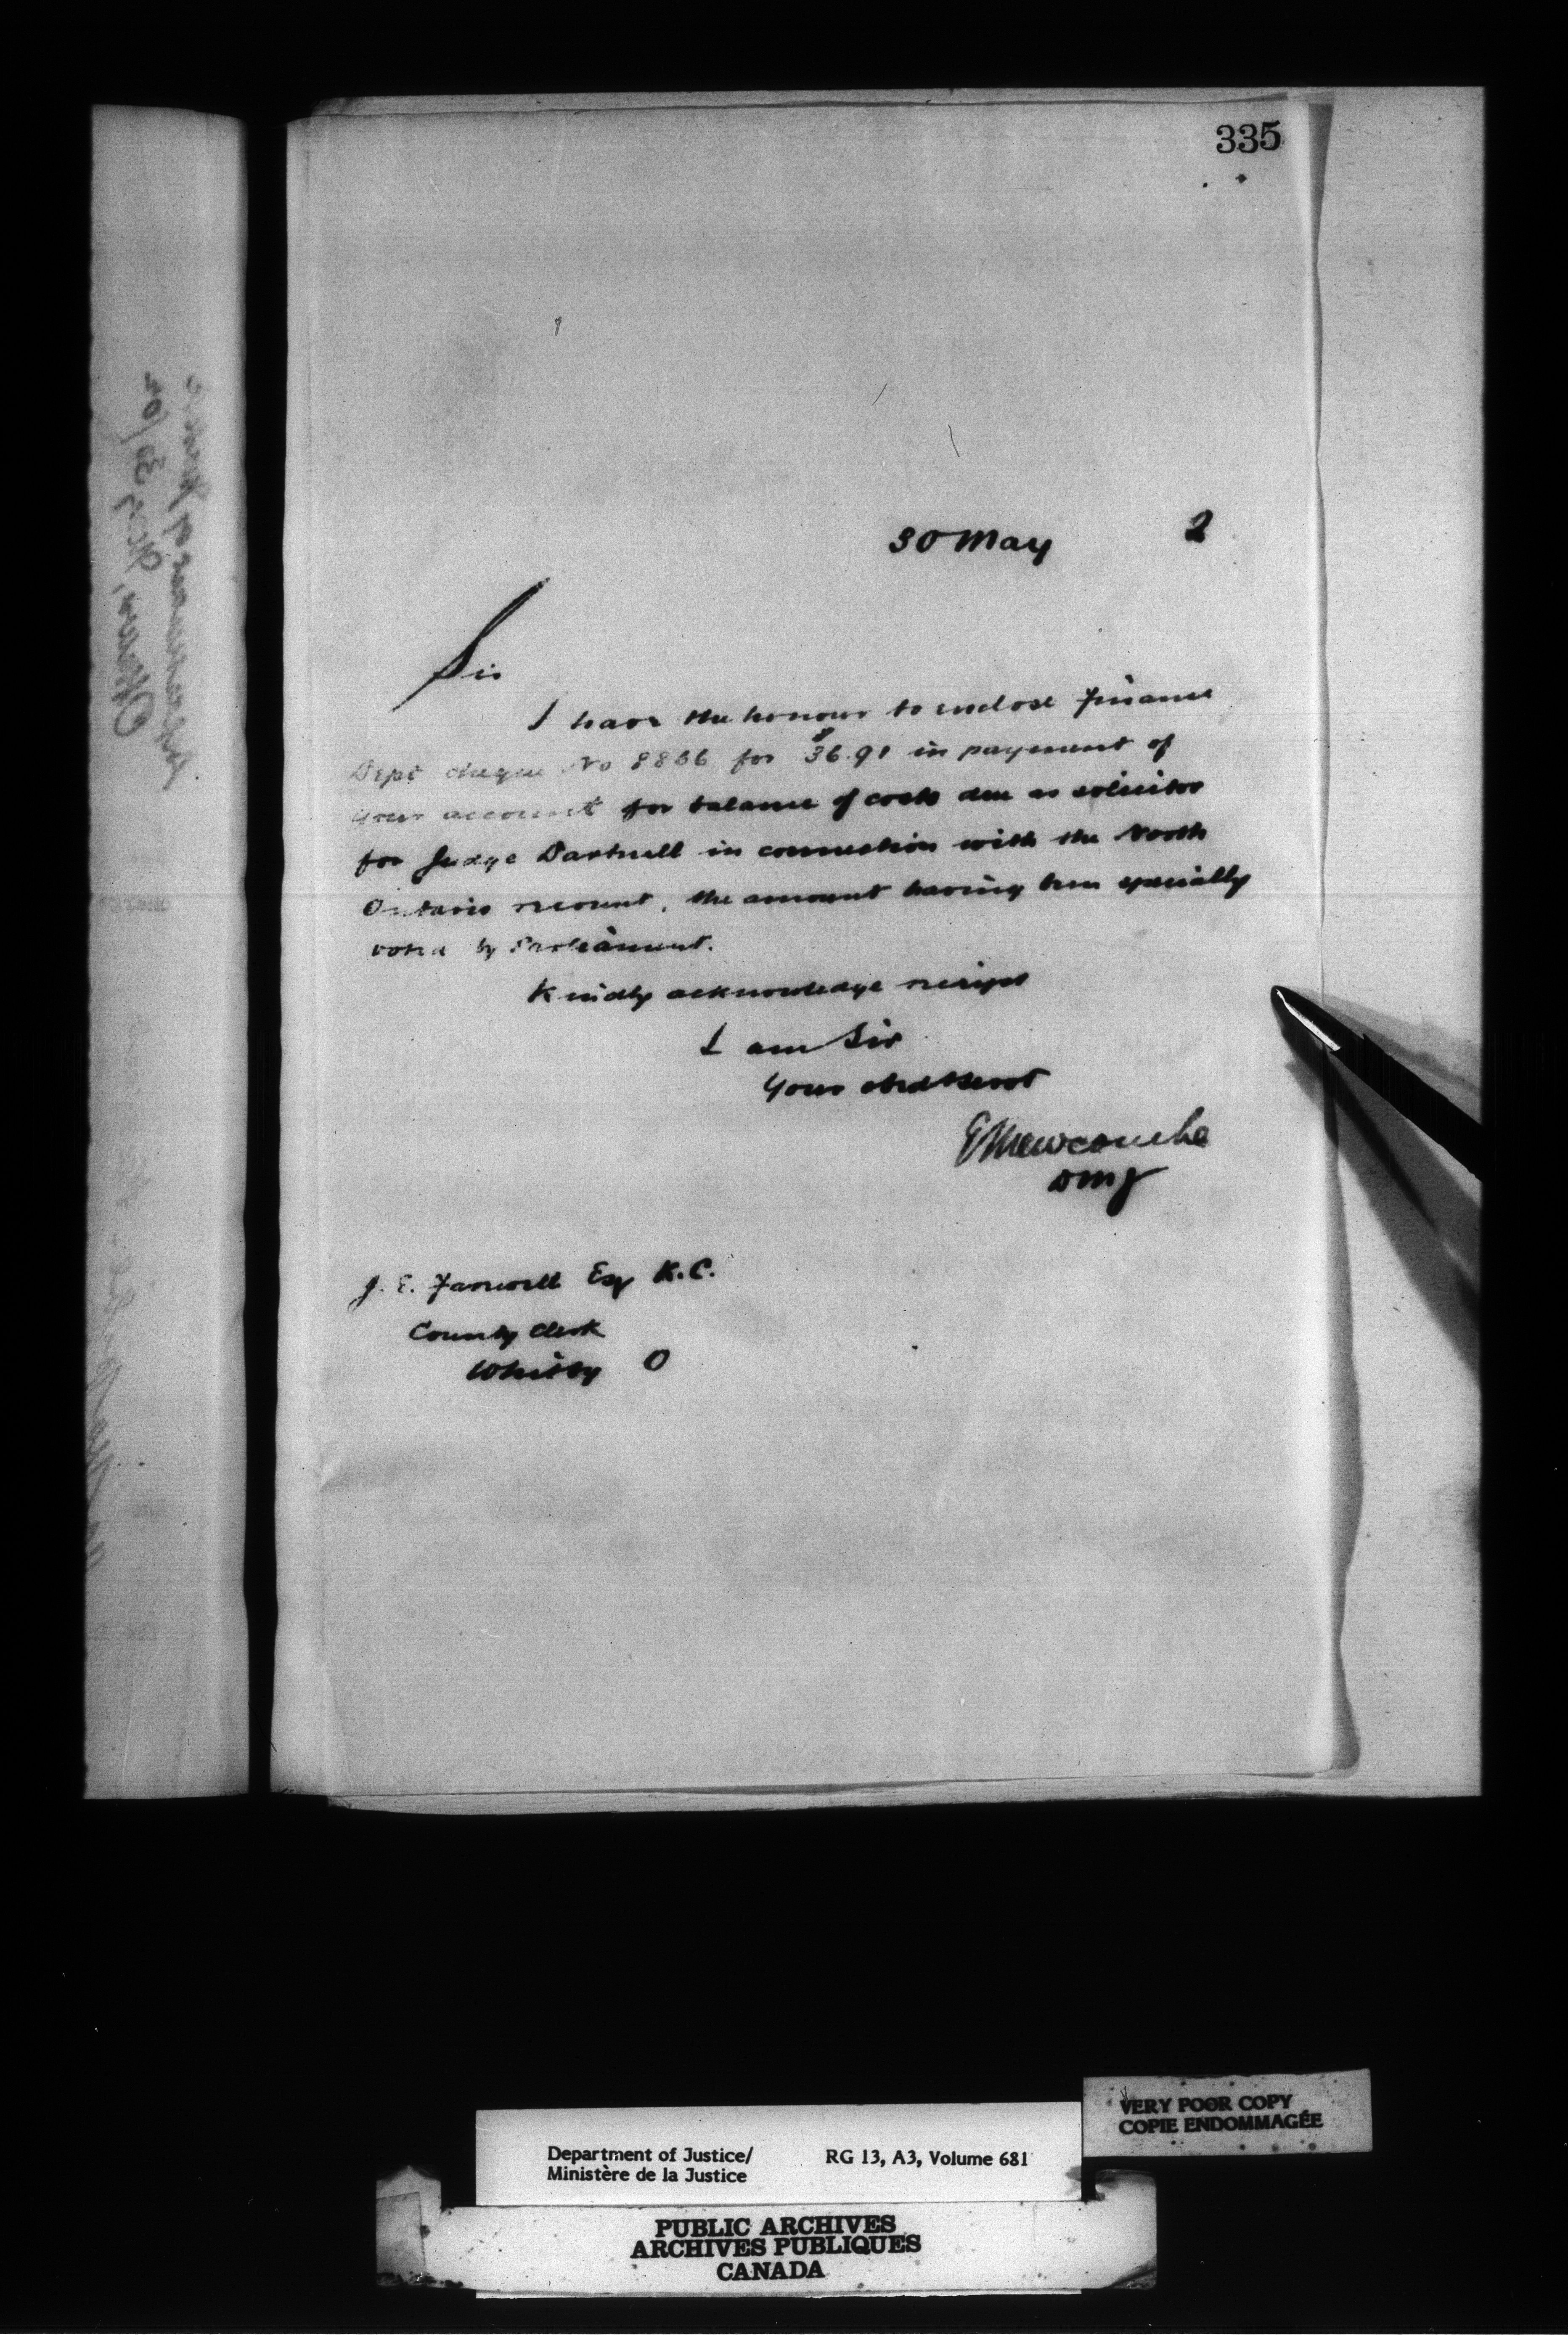 335
30 May 2
Sir
I have the honour to enclose Finance
Dept cheque No 8866 for $36.91 in payment of
your account for balance of costs due as solicitor
for Judge Dartnell in connection with the North
Ontario recount, the amount having been specially
voted by Parliament.
Kindly acknowledge receipt
I am Sir
Your obedt Servt
E L Newcombe
DMJ
J. E. Farewell Esq K.C.
County Clerk
Whitby O
VERY POOR COPY
COPIE ENDOMMAGÉE
Department of Justice/ RG 13, A3, Volume 681
Ministère de la Justice
PUBLIC ARCHIVES
ARCHIVES PUBLIQUES
CANADA